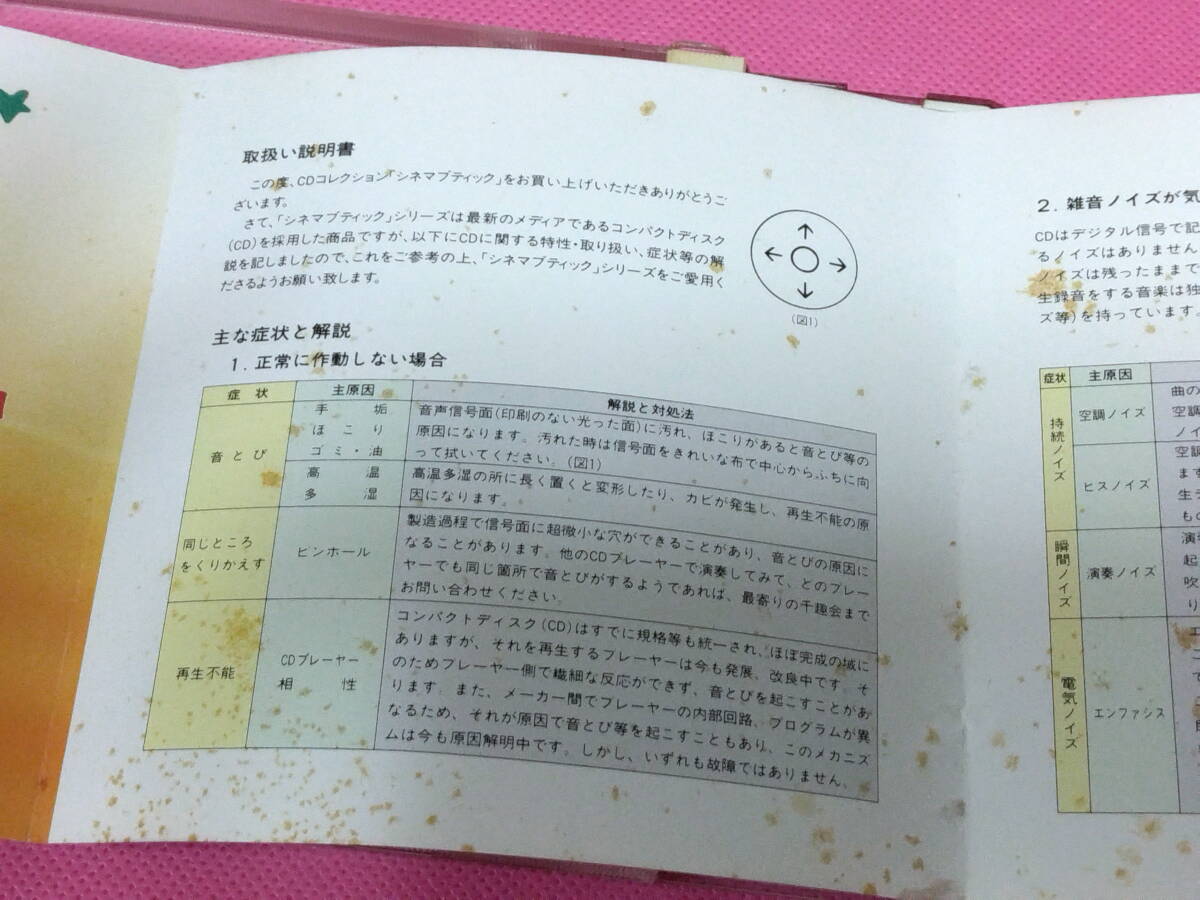 取扱い説明書
この度、CDコレクション「シネマブティック」をお買い上げいただきありがとうご
ざいます。
さて、「シネマブティック」シリーズは最新のメディアであるコンパクトディスク
(CD)を採用した商品ですが、以下にCDに関する特性・取り扱い、症状等の解
説を記しましたので、これをご参考の上、「シネマブティック」シリーズをご愛用く
ださるようお願い致します。
(図1)
主な症状と解説
1. 正常に作動しない場合
症状 主原因 解説と対処法
音とび
手垢
ほこり
ゴミ・油
音声信号面(印刷のない光った面)に汚れ、ほこりがあると音とび等の
原因になります。汚れた時は信号面をきれいな布で中心からふちに向
って拭いてください。(図1)
高温
多湿
高温多湿の所に長く置くと変形したり、カビが発生し、再生不能の原
因になります。
同じところ
をくりかえす
ピンホール
製造過程で信号面に超微小な穴ができることがあり、音とびの原因に
なることがあります。他のCDプレーヤーで演奏してみて、どのプレー
ヤーでも同じ箇所で音とびがするようであれば、最寄りの千趣会まで
お問い合わせください。
再生不能
CDプレーヤー
相性
コンパクトディスク(CD)はすでに規格等も統一され、ほぼ完成の域に
ありますが、それを再生するプレーヤーは今も発展、改良中です。そ
のためプレーヤー側で繊細な反応ができず、音とびを起こすことがあ
ります。また、メーカー間でプレーヤーの内部回路、プログラムが異
なるため、それが原因で音とび等を起こすこともあり、このメカニズ
ムは今も原因解明中です。しかし、いずれも故障ではありません。
2. 雑音ノイズが気
CDはデジタル信号で記
るノイズはありません
ノイズは残ったままで
生録音をする音楽は独
ズ等)を持っています。
症状 主原因
持続ノイズ
空調ノイズ
曲の
空調
ノイ
ヒスノイズ
空調
ます
生
もの
瞬間ノイズ
演奏ノイズ
演奏
起
吹
り
電気ノイズ
エンファシス